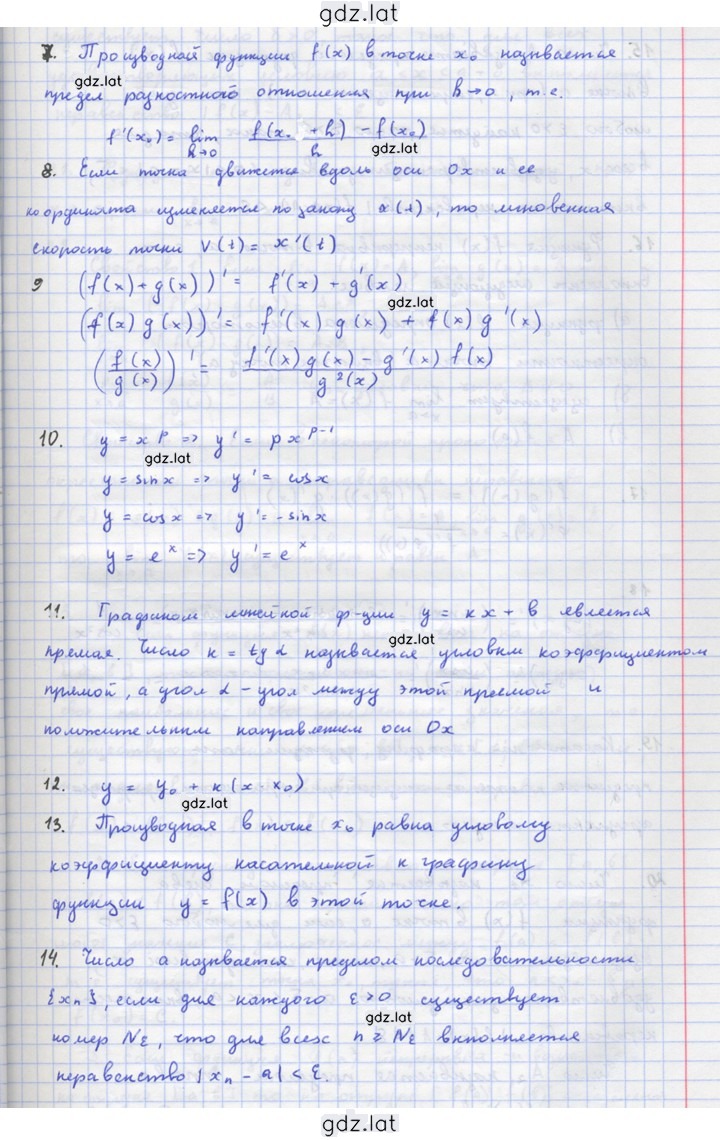 gdz.lat
7. Производной функции f(x) в точке x₀ называется
gdz.lat
предел разностного отношения при h→0, т.е.
f'(x₀) = lim h→0 f(x₀ + h) - f(x₀) / h
gdz.lat
8. Если точка движется вдоль оси Ox и ее
координата изменяется по закону x(t), то мгновенная
скорость точки V(t) = x'(t)
9 (f(x)+g(x))' = f'(x) + g'(x)
gdz.lat
(f(x) g(x))' = f'(x) g(x) + f(x) g'(x)
(f(x) / g(x))' = f'(x) g(x) - g'(x) f(x) / g²(x)
10. y = x^p => y' = p x^(p-1)
gdz.lat
y = sin x => y' = cos x
y = cos x => y' = - sin x
y = e^x => y' = e^x
11. Графиком линейной ф-ции y = kx + b является
gdz.lat
прямая. Число k = tg α называется угловым коэффициентом
прямой, а угол α - угол между этой прямой и
положительным направлением оси Ox
12. y = y₀ + k (x - x₀)
gdz.lat
13. Производная в точке x₀ равна угловому
коэффициенту касательной к графику
функции y = f(x) в этой точке.
14. Число a называется пределом последовательности
{xₙ}, если для каждого ε > 0 существует
gdz.lat
номер Nε, что для всех n ≥ Nε выполняется
неравенство |xₙ - a| < ε.
gdz.lat